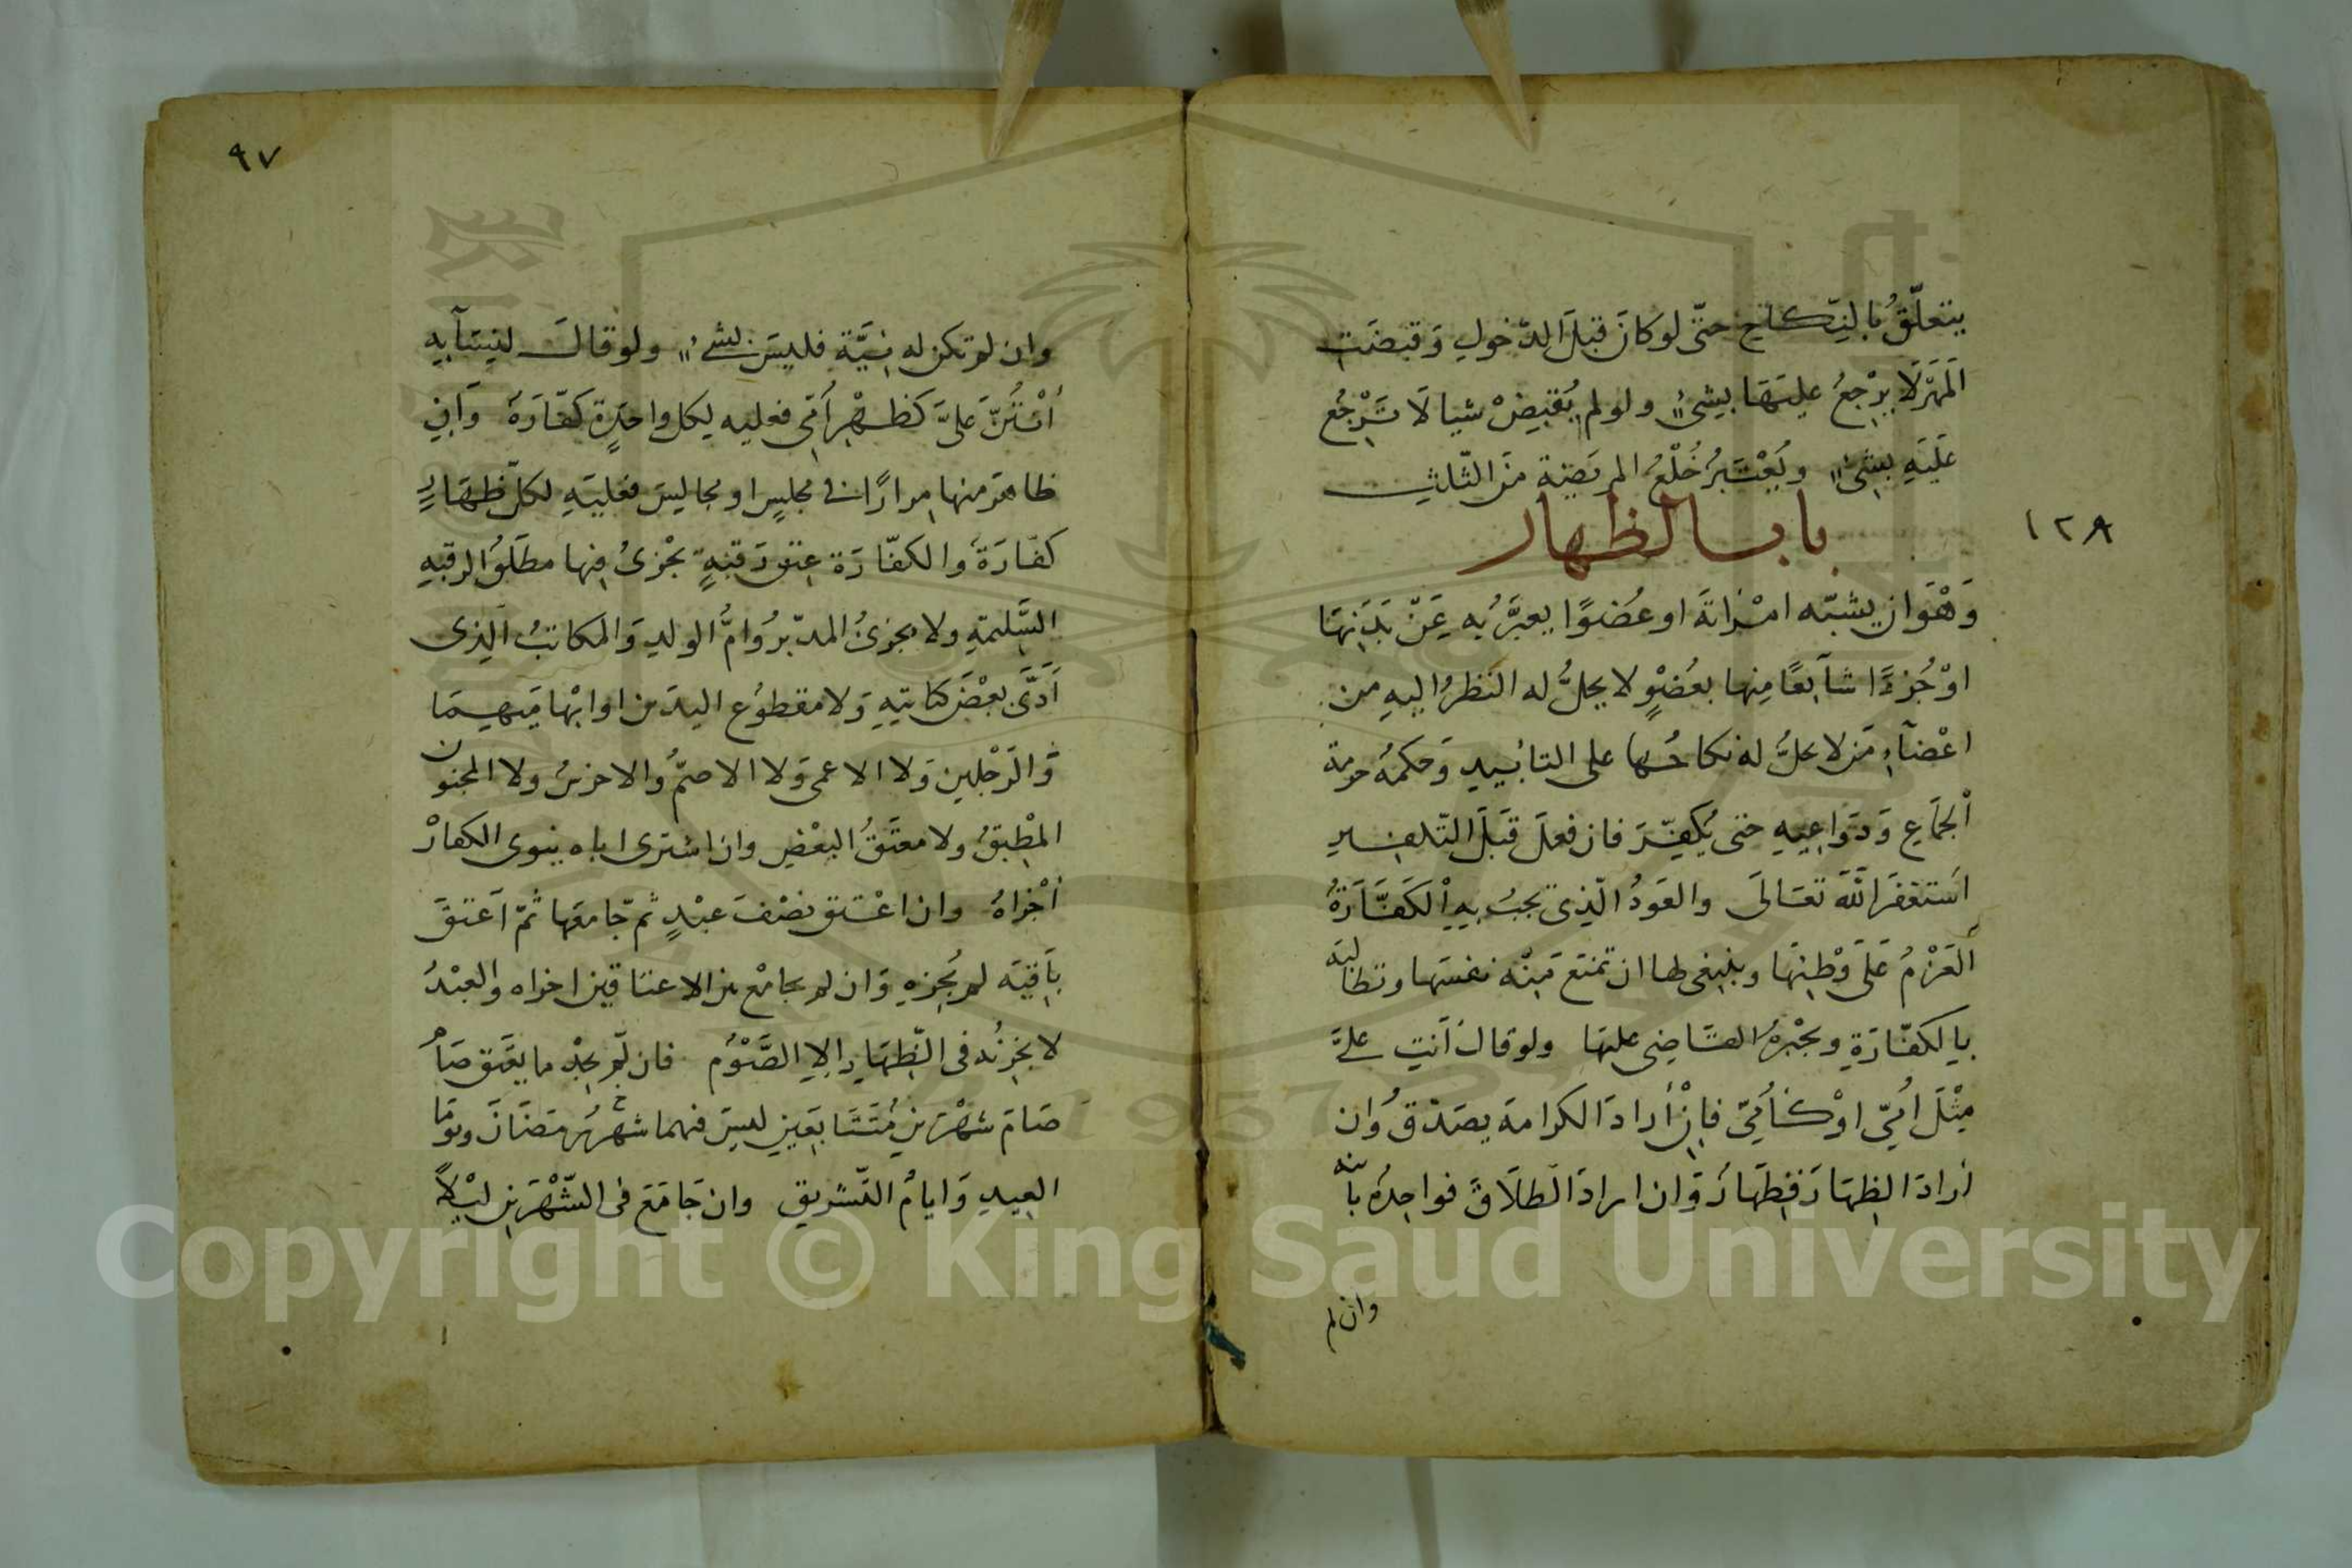 يتعلّقُ بالنِّكاحِ حتّى لو كانَ قبلَ الدّخولِ وَقبضَتِ
المَهْرَ لَا يَرْجعُ عليهَا بشئٍ ولو لم يُقبِضْ شيا لَا تَرْجُع
عَلَيَهِ بشئٍ ويُعْتَبرُ خُلْعُ المريَضةِ منَ الثّلثِ
باب الظهار
١٢٨
وَهْوَ ان يشبّه امْرَاتَه او عُضوًا يعبَّرُ بِه عَنْ بَدَنِهَا
اوْ جُزءًا شآئعًا مِنها بعُضْوٍ لا يحلُّ له النَظرُ اليهِ من
اعْضآءِ مَن لا يحلُّ له نكاحُها على التابيدِ وَحكمُه حرمة
الْجمَاعِ وَدَوَاعِيهِ حتى يُكفِّرَ فان فعلَ قبَلَ التّكفيرِ
اسَتغفَرَ اللّٰهَ تعَالَى والعَودُ الّذِى تجبُ بِهِ الْكَفَّارَةُ
اَلعَزْمُ عَلَى وَطْئِهَا وينبغى لها ان تمنَعَ مِنْه نفسَها وتطالبَه
بِالكفّارَةِ ويجْبرُه القاضِى عليهَا ولو قال اَنتِ علىَّ
مِثْلَ اُمِّىّ اوْ كأُمِّىّ فاِنْ أَرادَ الكرامَه يصَدّقُ وان
أرادَ الظِهَارَ فظِهَارٌ وَان ارادَ الطلَاقَ فواحِدةُ بائنه
وان لم
٩٧
وان لم تكن له نِيَّة فليسَ بشئٍ ولو قالَ لنِسَآيِهِ
أنْتُنّ علىَّ كظَهْرِ اُمِّى فعليه لِكل واحدَةٍ كفّارَةٌ وَاِن
ظاهرَ منها مِرارًا فى مجلسٍ او مجالِسَ فعليَهِ لكلّ ظِهَارٍ
كفّارَةٌ وَالكفّارَة عِتق رَقبَةٍ يجْزئُ فِيها مطلَقُ الرقبهِ
السَّلِيمَةِ ولا يجزئُ المدبّرُ وَامُّ الولدِ وَالمكاتبُ الّذِى
اَدَّى بعْضَ كتابتِهِ وَلا مقطوُع اليدَين او ابْهامَيهِما
وَالرّجْلين وَلا الاعمى وَلا الاصمُّ والاخرسُ ولا المجنون
المطْبقُ ولا معتَقُ البعْضِ وان اشترى اباه ينوى الكفارْ
أجْزاهُ وان اعْتق نصْفَ عبْدٍ ثمّ جَامعَها ثمّ اَعتقَ
بَاقيَه لم يُجزِهِ وَان لم يجامْع بين الاعتاقين اجزاه والعبْدُ
لا يجزئُه فى الظِّهَارِ اِلا الصَّوْم فان لّم يجْد ما يعَتق صَامُ
صَامَ شهْرَين مُتَتَابعَين ليسَ فيهما شهْرُ رمضَانَ ويومَا
العِيدِ وَايامُ التَّشريق وان جَامَعَ فى الشّهْرَينِ ليْلاً
Copyright © King Saud University
1957